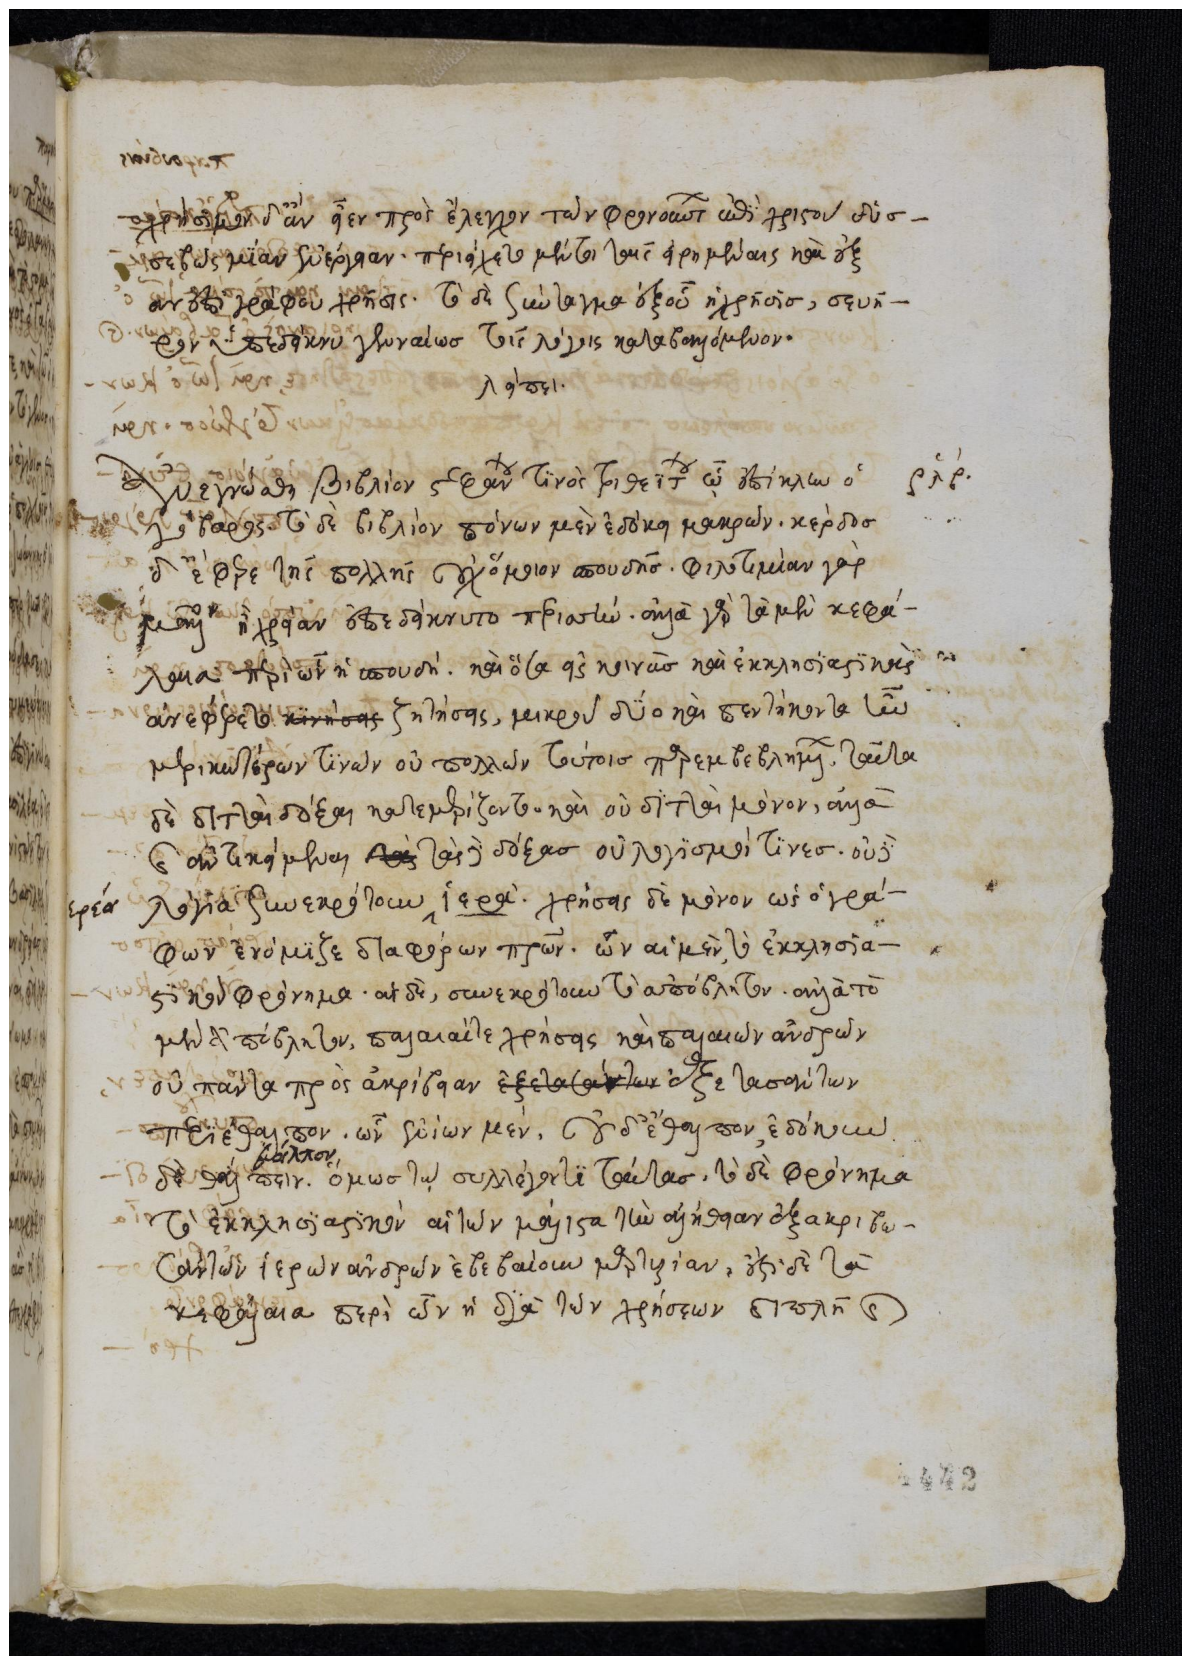 χρήσιμον δ' ἂν εἴη πρὸς ἔλεγχον τῶν φρονούντων ἐπὶ χριστοῦ δυσ-
σεβῶς μίαν ἐνέργειαν. περιείχετο μέντοι ταῖς εἰρημέναις καὶ ἐξ
ἀνεπιγράφου χρῆσις. τὸ δὲ σύνταγμα ἐξ οὗ ἡ χρῆσις, σευῆ-
ρον ὑπεδείκνυ γενναίως τοῖς λόγοις
λείπει.
Ἀνεγνώσθη βιβλίον στεφάνου τινὸς τριθεΐτου ᾧ ἐπίκλην ὁ
γόβαρος. τὸ δὲ βιβλίον πόνων μὲν ἐδόκει μακρῶν. κέρδος
δ' ἔφερε τῆς πολλῆς οὐχ ὅμοιον σπουδῆς. φιλοτιμίαν γὰρ
μᾶλλον ἢ χρείαν ὑπεδείκνυτο περιττήν. ἀλλὰ γὰρ τὰ μὲν κεφά-
λαια περὶ ὧν ἡ σπουδή. καὶ ὅσα εἰς κοινὰς καὶ ἐκκλησιαστικὰς
ἀνεφέρετο κινήσεις ζητήσεις, μικροῦ δύο καὶ πεντήκοντα ἦν
μερικωτέρων τινῶν οὐ πολλῶν τούτοις παρεμβεβλημένων. ταῦτα
δὲ διτταὶ δόξαι κατεμερίζοντο. καὶ οὐ διτταὶ μόνον, ἀλλὰ
καὶ ἀντικείμεναι τὰς δὲ δόξας οὐ λογισμοί τινες. οὐδὲ
λόγια συνεκρότουν ἱερά. χρήσεις δὲ μόνον ὡς ὁ γρά-
φων ἐνόμιζε διαφόρων πατέρων. ὧν αἱ μὲν, τὸ ἐκκλησια-
στικὸν φρόνημα. αἱ δὲ, συνεκρότουν τὸ ἀπόβλητον. ἀλλὰ τὸ
μὲν ἀπόβλητον, παλαιαί τε χρήσεις καὶ παλαιῶν ἀνδρῶν
οὐ πάντα πρὸς ἀκρίβειαν ἐξετασάντων ἐξετασάντων
περιέθαλπον. ὧν ἐνίων μὲν, οὐδ' ἔθαλπον, ἐδόκουν
δὲ θάλπειν. ὅμως τῷ συλλέγοντι ταύτας. τὸ δὲ φρόνημα
τὸ ἐκκλησιαστικὸν αἱ τῶν μάλιστα τὴν ἀλήθειαν ἐξακριβω-
σάντων ἱερῶν ἀνδρῶν ἐβεβαίουν μαρτυρίαι. ἔστι δὲ τὰ
κεφάλαια περὶ ὧν ἡ διὰ τῶν χρήσεων διπλῆ καὶ